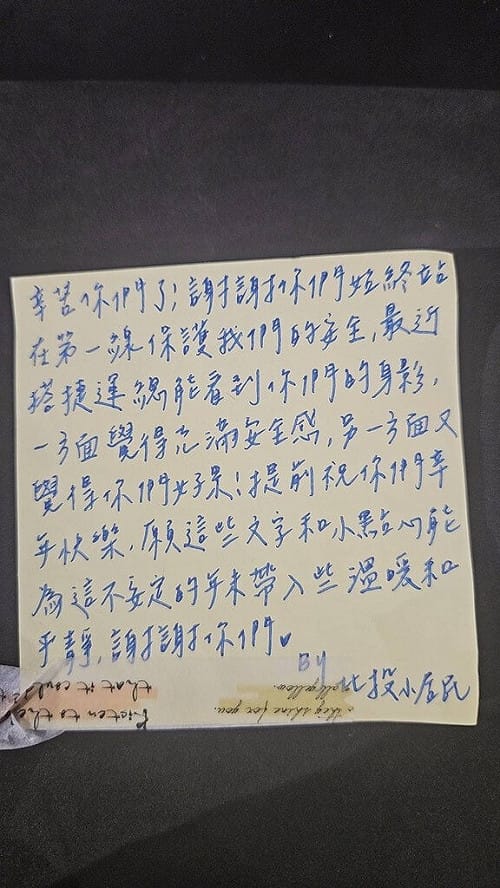 辛苦你們了!謝謝你們始終站
在第一線保護我們的安全,最近
搭捷運總能看到你們的身影,
一方面覺得充滿安全感,另一方面又
覺得你們好累!提前祝你們辛
年快樂,願這些文字和小點心能
為這不安定的年末帶入些溫暖和
平靜,謝謝你們♥
BY
北投小居民
they shine for you.
all yellow.
Listen to the
that it could